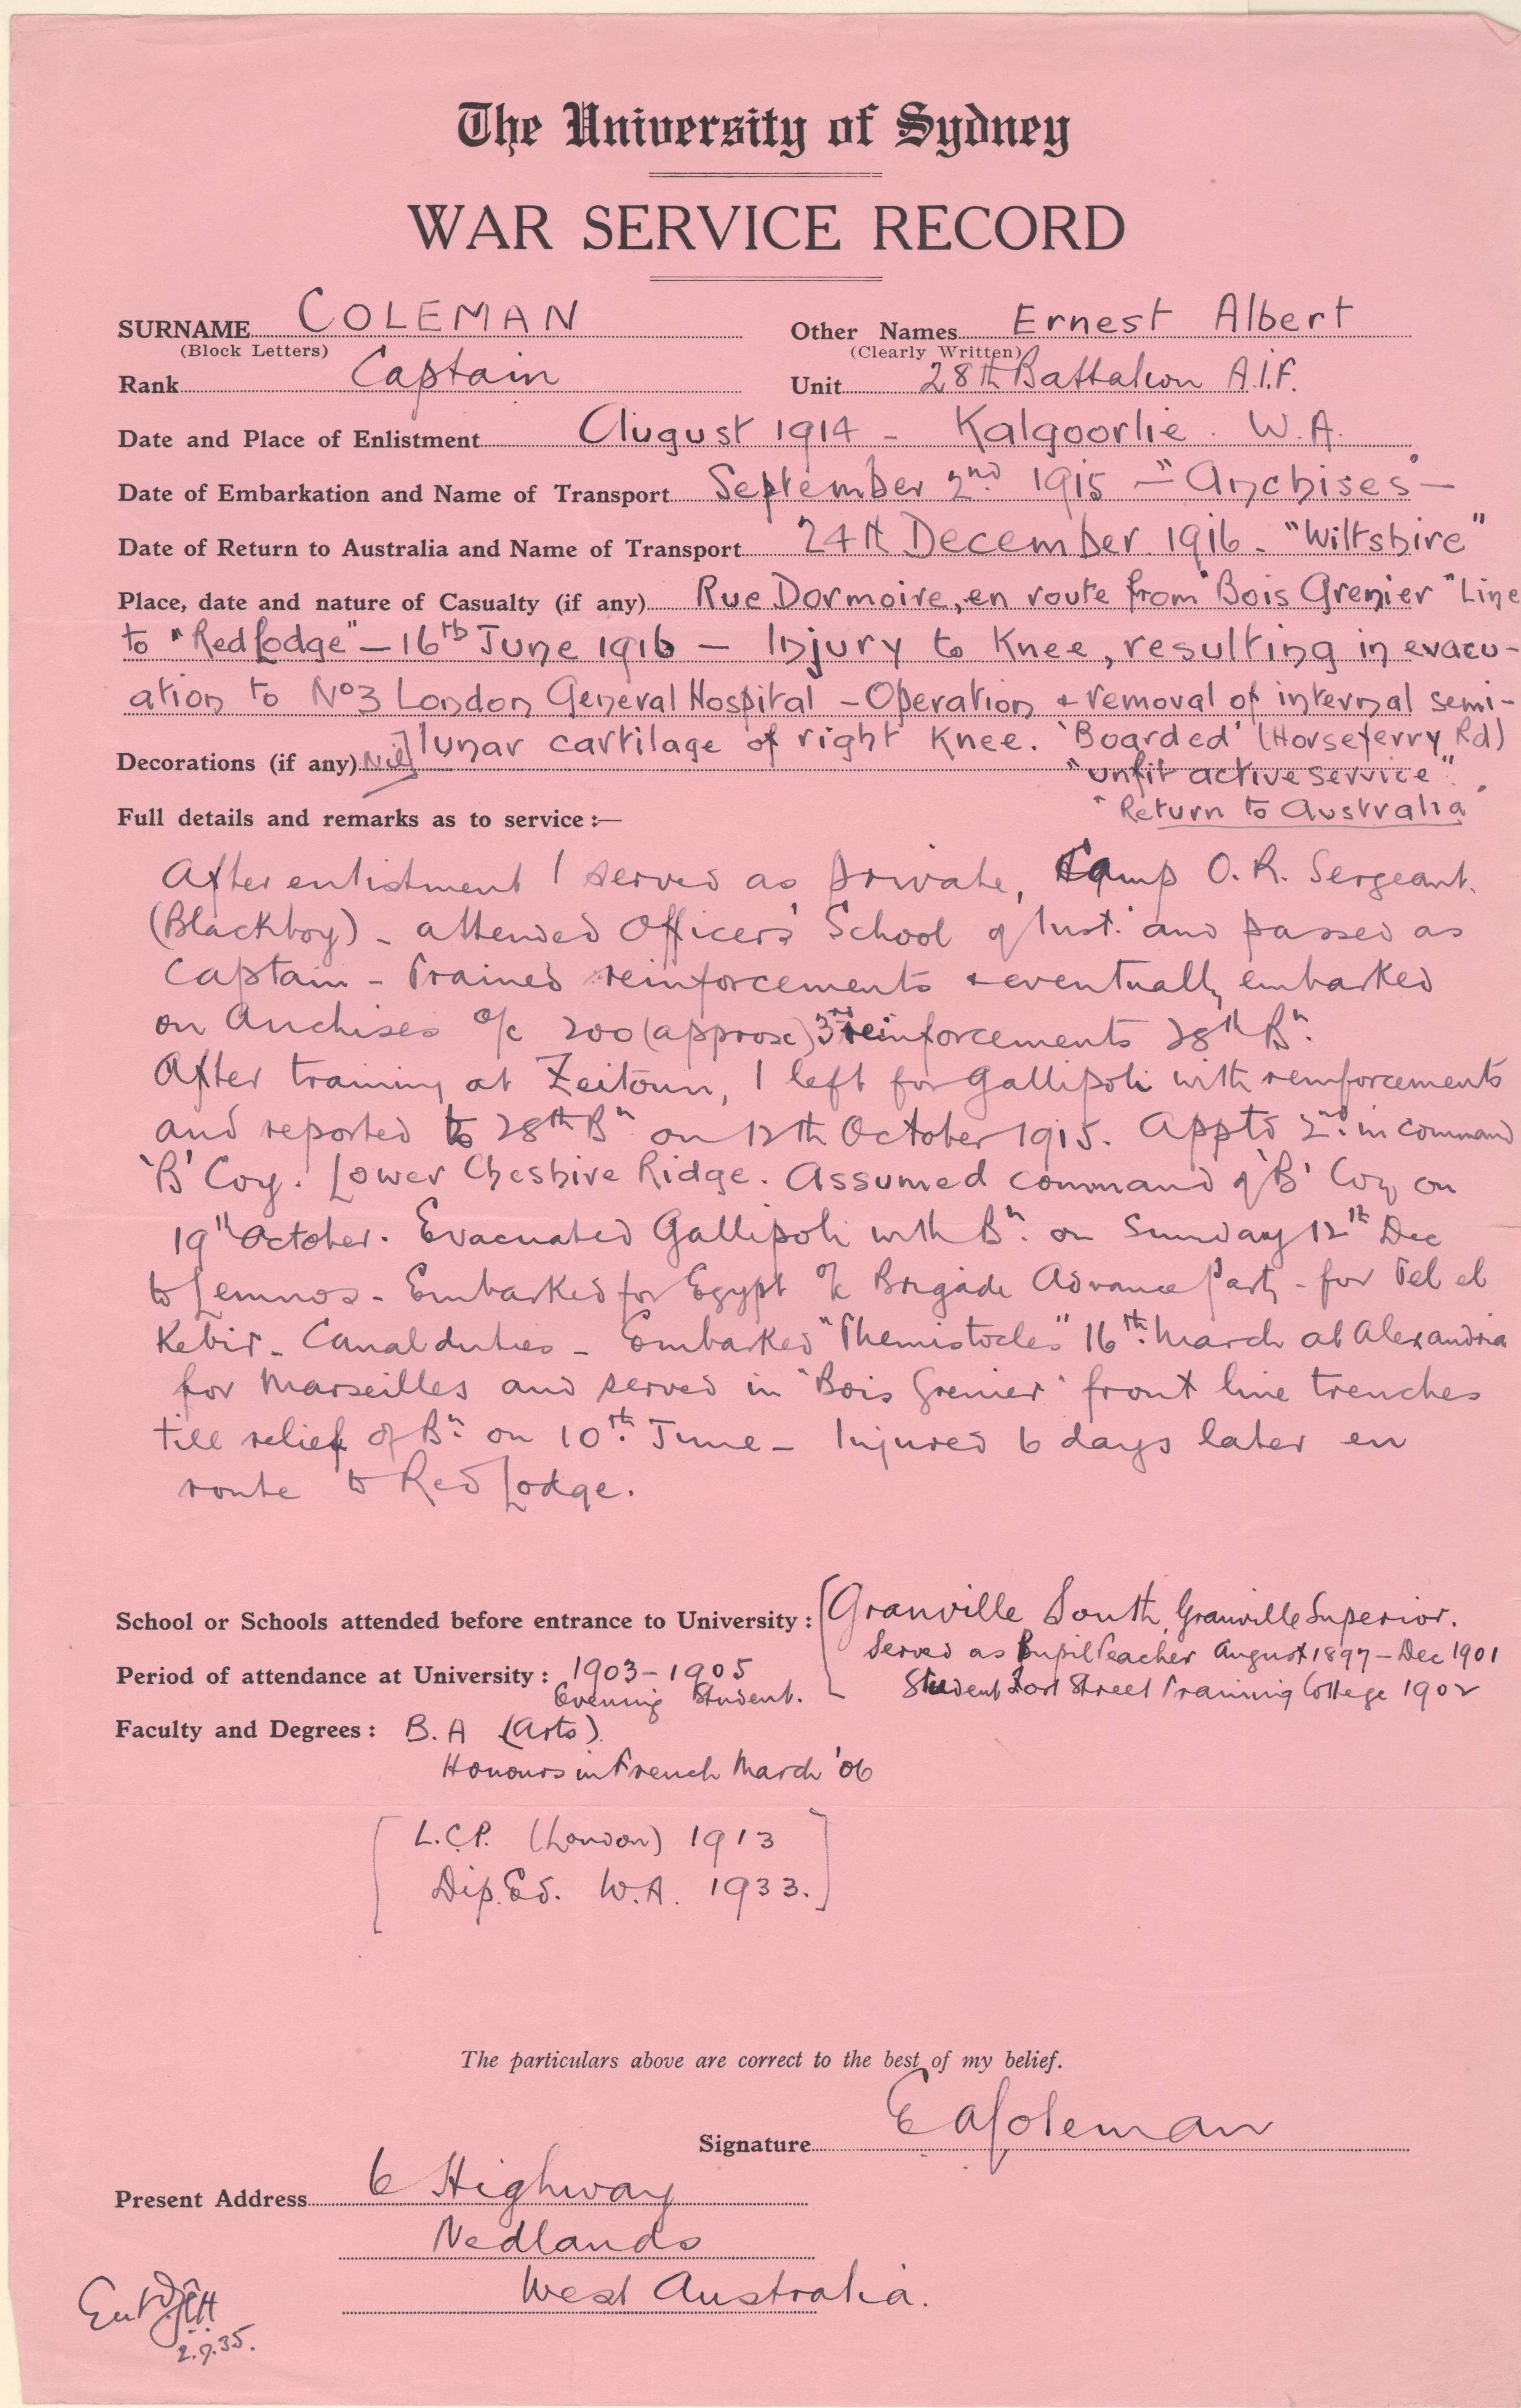 The University of Sydney
WAR SERVICE RECORD
SURNAME COLEMAN Other Names Ernest Albert
(Block Letters) (Clearly Written)
Rank Captain Unit 28th Battalion A.I.F.
Date and Place of Enlistment August 1914 - Kalgoorlie. W.A.
Date of Embarkation and Name of Transport September 2nd 1915 - "Anchises" -
Date of Return to Australia and Name of Transport 24th December 1916 - "Wiltshire"
Place, date and nature of Casualty (if any) Rue Dormoire, en route from "Bois Grenier" Line
to "Red Lodge" - 16th June 1916 - Injury to Knee, resulting in evacu-
ation to No 3 London General Hospital - Operation + removal of internal semi-
lunar cartilage of right Knee. 'Boarded' (Horseferry Rd)
Decorations (if any) Nil
"unfit active service".
"Return to Australia"
Full details and remarks as to service :—
After enlistment I served as private, Camp O.R. Sergeant.
(Blackboy) - attended Officers' School of Inst. and passed as
Captain - Trained reinforcements + eventually embarked
on Anchises o/c 200 (approx) 3rd reinforcements 28th Bn.
After training at Zeitoun, I left for Gallipoli with reinforcements
and reported to 28th Bn on 12th October 1915. Apptd 2nd in command
'B' Coy. Lower Cheshire Ridge. Assumed command of 'B' Coy on
19th October. Evacuated Gallipoli with Bn. on Sunday 12th Dec
to Lemnos - Embarked for Egypt o/c Brigade Advance Party - for Tel el
Kebir - Canal duties - Embarked "Themistocles" 16th March at Alexandria
for Marseilles and served in "Bois Grenier" front line trenches
till relief of Bn. on 10th. June - Injured 6 days later en
route to Red Lodge.
School or Schools attended before entrance to University : Granville South, Granville Superior.
Served as Pupil Teacher August 1897 - Dec 1901
Student Fort Street Training College 1902
Period of attendance at University : 1903-1905
Evening Student.
Faculty and Degrees : B.A (Arts)
Honours in French March '06
[L.C.P. (London) 1913
Dip. Ed. W.A. 1933.]
The particulars above are correct to the best of my belief.
Signature E A Coleman
Present Address 6 Highway
Nedlands
West Australia.
2.9.35.